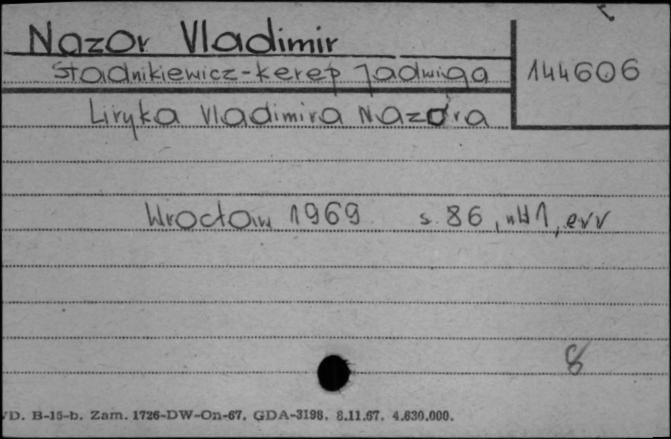 Nazor Vladimir
Stadnikiewicz-Kerep Jadwiga
144606
Liryka Vladimira Nazora
Wrocław 1969 s. 86, nlb 1, err
8
D. B-15-b. Zam. 1726-DW-On-67. GDA-3198. 8.11.67. 4.630.000.